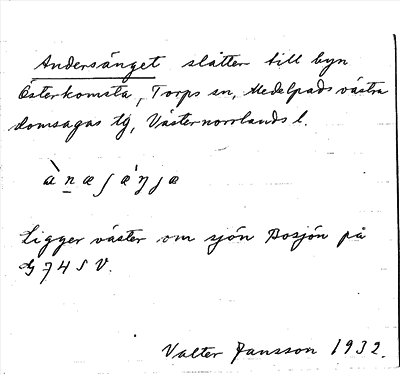 Andersänget slåtter till byn
Österkomsta, Torps sn, Medelpads västra
domsagas tg, Västernorrlands l.
Ligger väster om sjön Bosjön på
G 7 4 S V.
Valter Jansson 1932.